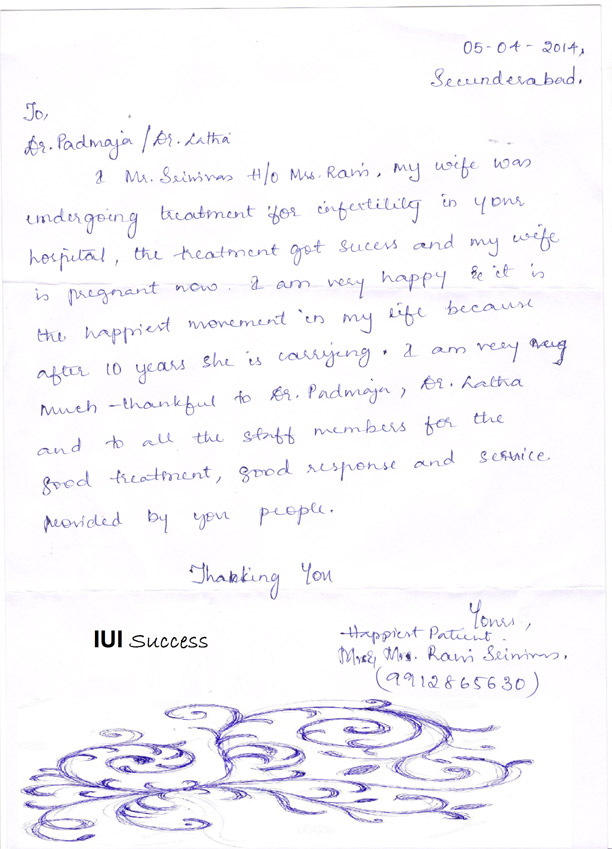 05-04-2014,
Secunderabad.
To,
Dr. Padmaja / Dr. Latha
I Mr. Srinivas H/o Mrs. Rani, my wife was
undergoing treatment for infertility in your
hospital, the treatment got sucess and my wife
is pregnant now. I am very happy & it is
the happiest movement in my life because
after 10 years she is carrying. I am very very
much thankful to Dr. Padmaja, Dr. Latha
and to all the staff members for the
good treatment, good response and service
provided by you people.
Thanking You
Yours,
Happiest Patient.
Mr & Mrs. Rani Srinivas.
(9912865630)
IUI Success